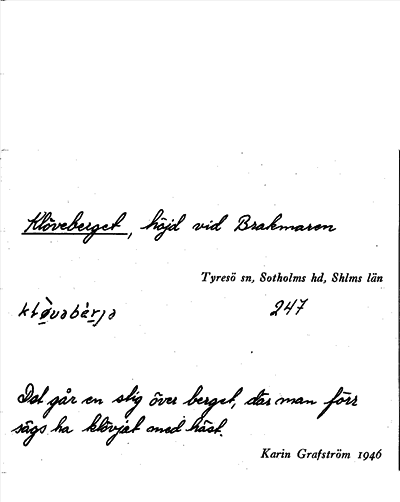 Klöveberget, höjd vid Brakmaren
Tyresö sn, Sotholms hd, Shlms län
247
Det går en stig över berget, där man förr
sägs ha klövjat med häst.
Karin Grafström 1946